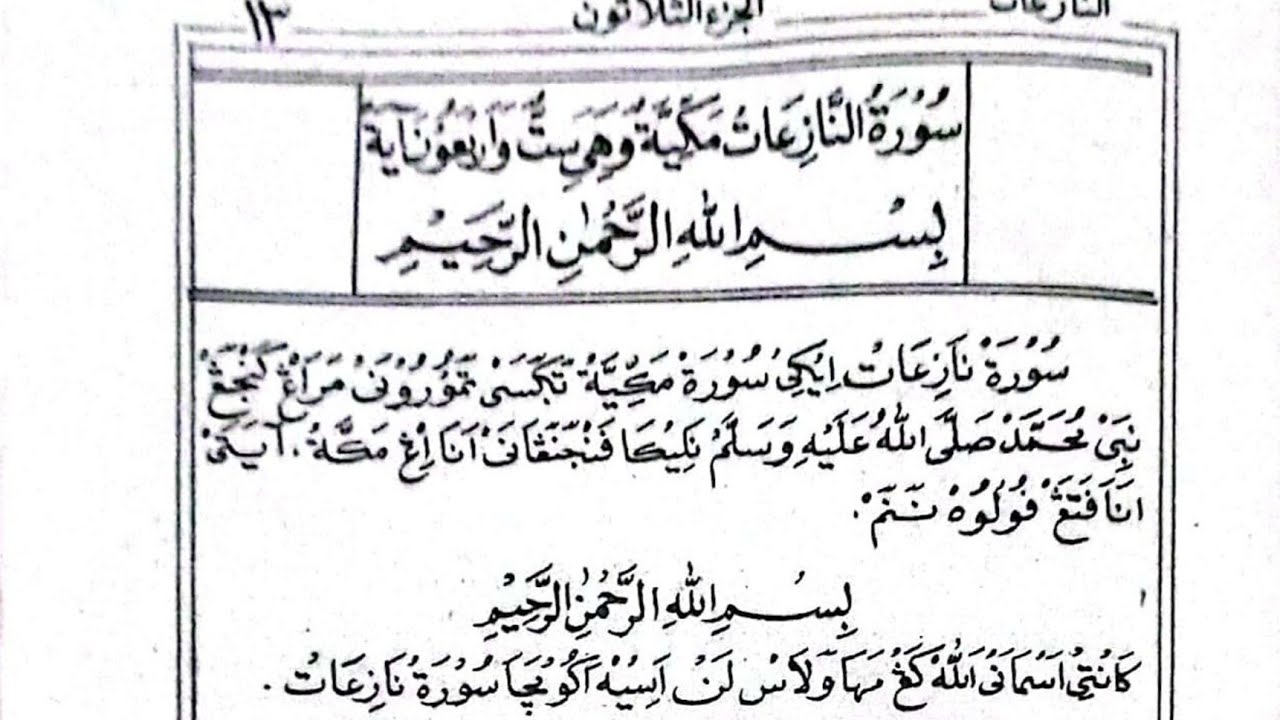 النازعات الجزء الثلاثون ١٣
سُوْرَةُ النَّازِعَاتُ مَكِّيَّةٌ وَهِيَ سِتٌّ وَاَرْبَعُوْنَ اٰيَةً
بِسْمِ اللهِ الرَّحْمٰنِ الرَّحِيْمِ
سُوْرَةْ نَازِعَاتْ اِيْكِيْ سُوْرَةْ مَكِّيَّةْ تَكْسَىْ تُمَوْرُوْنَىْ مَرَاڠْ كَنْجَڠْ
نَبِيْ مُحَمَّدْ صَلَّى اللهُ عَلَيْهِ وَسَلَّمْ نَلِيْكَا فَنْجَنْڠَانَىْ اَنَا اِڠْ مَكَّةْ. اَيَتَىْ
اَنَا فَتَڠْ فُوْلُوْهْ نَنَمْ.
بِسْمِ اللهِ الرَّحْمٰنِ الرَّحِيْمِ
كَانْتِيْ اَسْمَانَىْ اَللهْ كَڠْ مَهَا وَلَاسْ لَنْ اَسِيْهْ اَكُوْ بَچَا سُوْرَةْ نَازِعَاتْ.